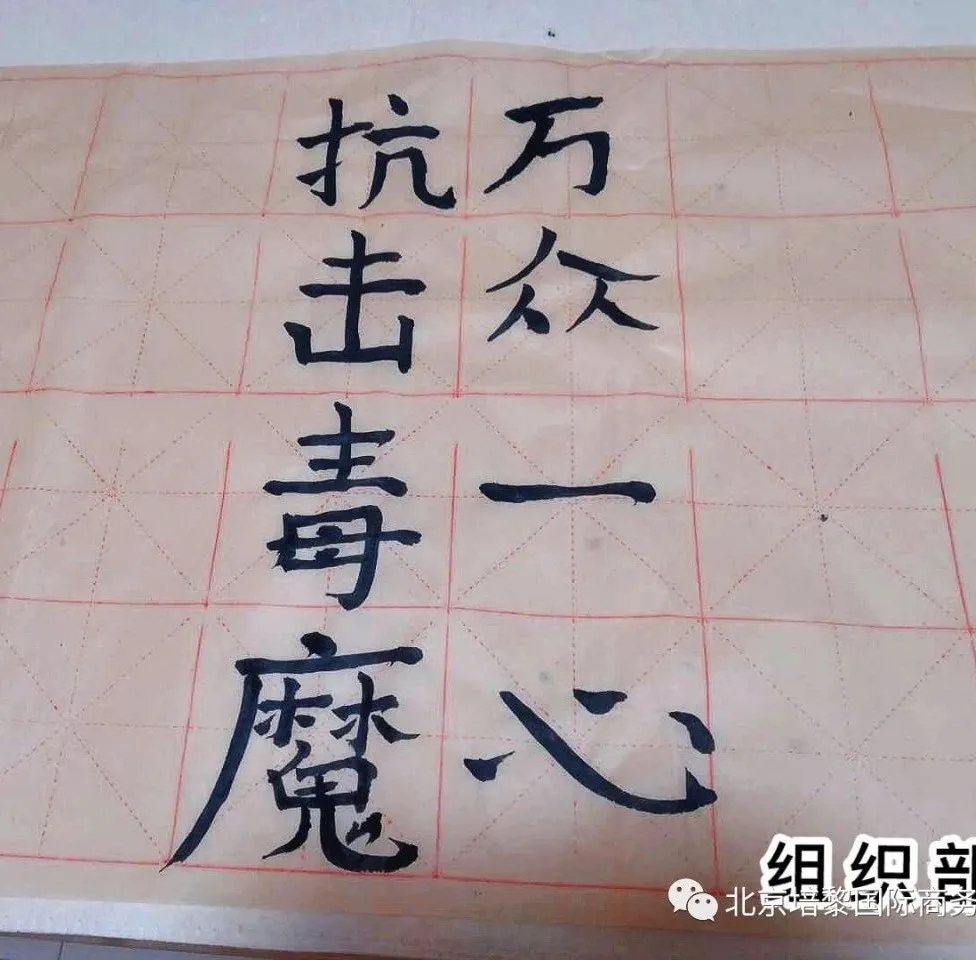 万众一心
抗击毒魔
组织部
北京培黎国际商务